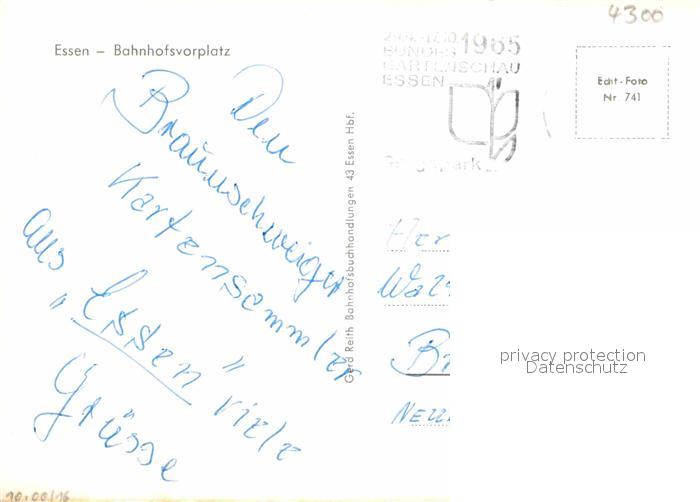 4300
Essen – Bahnhofsvorplatz
1965
BUNDES
GARTENSCHAU
ESSEN
Echt-Foto
Nr 741
Den
Braunschweiger
Kartensammler
aus "Essen" viele
Grüsse
Gerd Reith Bahnhofsbuchhandlungen 43 Essen Hbf.
Her
Walt
Br
privacy protection
Datenschutz
10.00/16